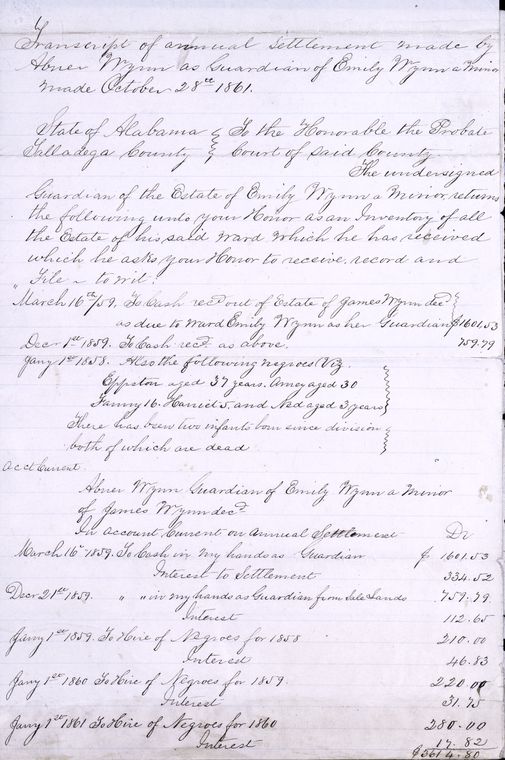 Transcript of annual settlement made by
Abner Wynn as Guardian of Emily Wynn a Minor
made October 28th 1861.
State of Alabama } To the Honorable the Probate
Talladega County } Court of said County.
The undersigned
Guardian of the Estate of Emily Wynn a Minor, returns
the following unto your Honor as an Inventory of all
the Estate of his said ward which he has received
which he asks your Honor to receive, record and
File - to wit.
March 16th/59. To Cash recd out of Estate of James Wynn decd }
as due to ward Emily Wynn as her Guardian } $1601.53
Decr 1st 1859. To Cash recd as above. 759.79
Jany 1st 1858. Also the following negroes Viz.
Eppston aged 37 years. Amey aged 30
Fanny 16. Hariet 5, and Ned aged 3 years
There has been two infants born since division
both of which are dead
Acct Current.
Abner Wynn Guardian of Emily Wynn a Minor
of James Wynn decd
In account Current on Annual Settlement Dr
March 16th 1859. To Cash in my hands as Guardian $ 1601.53
Interest to Settlement 334.52
Decr 21st 1859. " " in my hands as Guardian from Sale Lands 759.79
Interest 112.65
Jany 1st 1859. To Hire of Negroes for 1858 210.00
Interest 46.83
Jany 1st 1860 To Hire of Negroes for 1859. 220.00
Interest 31.75
Jany 1st 1861 To Hire of Negroes for 1860 280.00
Interest 17.82
$3614.80